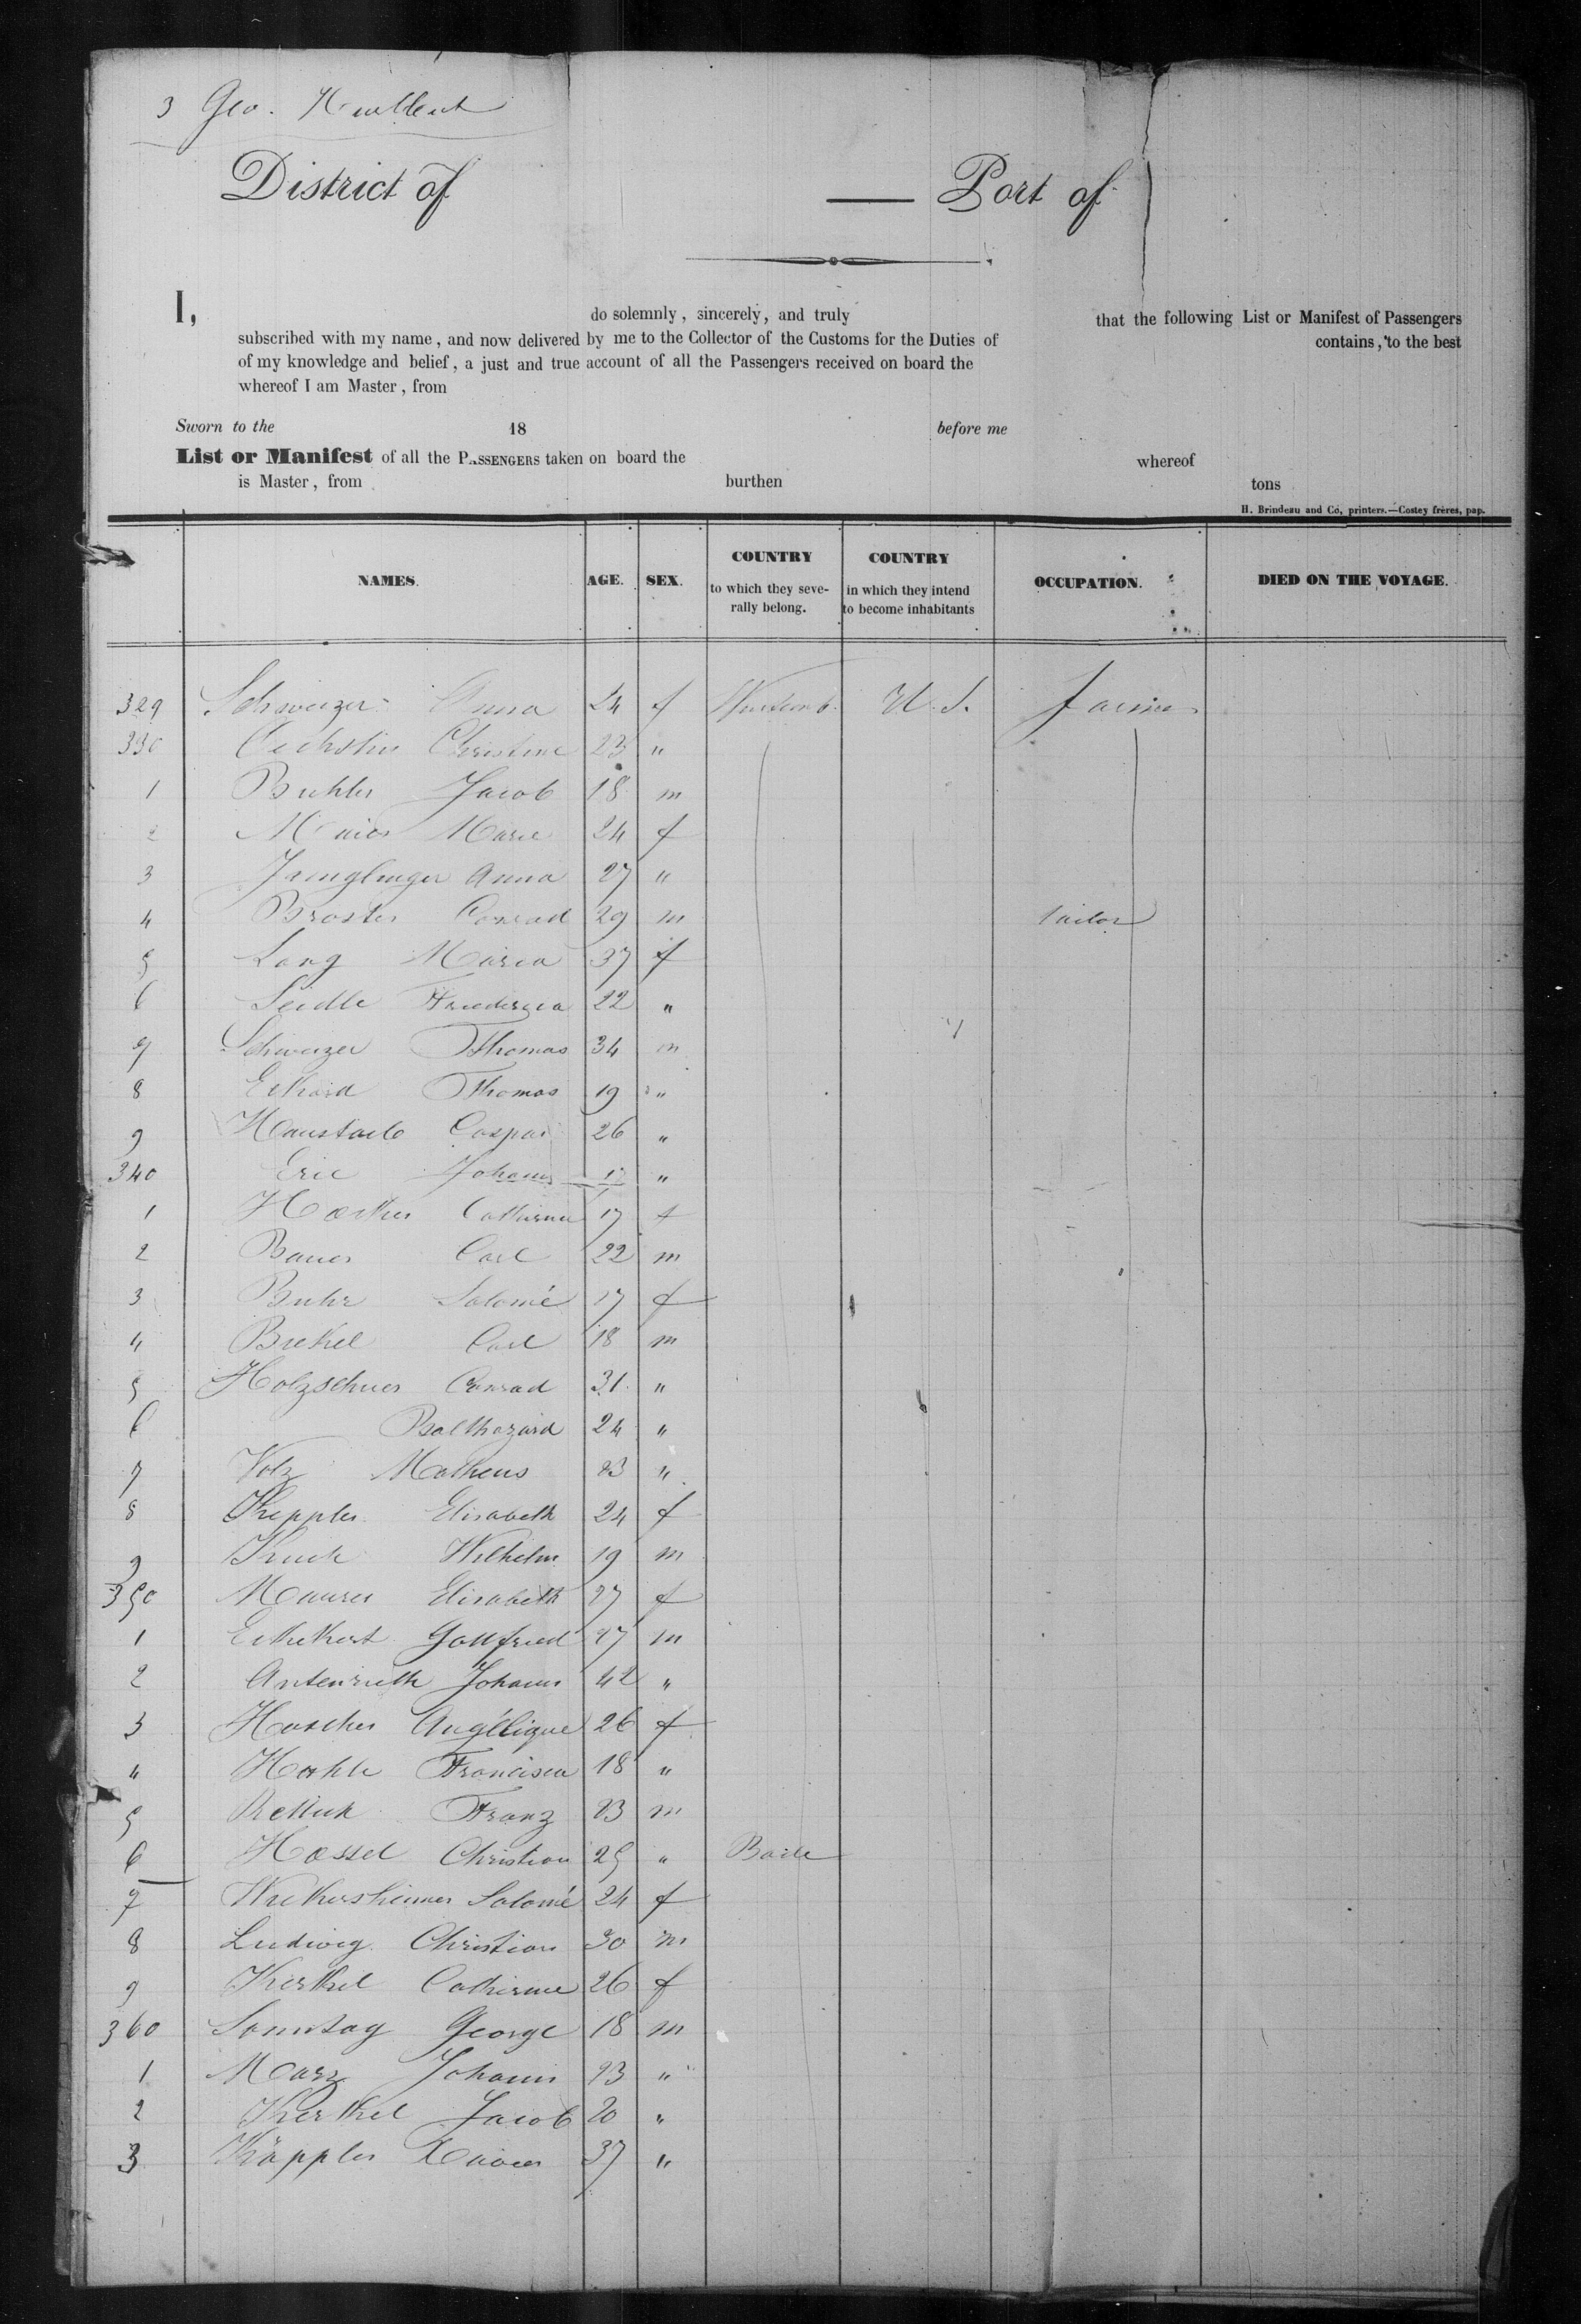 3 Geo. Hurlbut
District of — Port of
I, do solemnly, sincerely, and truly that the following List or Manifest of Passengers
subscribed with my name, and now delivered by me to the Collector of the Customs for the Duties of contains, to the best
of my knowledge and belief, a just and true account of all the Passengers received on board the
whereof I am Master, from
Sworn to the 18 before me
List or Manifest of all the PASSENGERS taken on board the whereof
is Master, from burthen tons
H. Brindeau and Co, printers.—Costey frères, pap.
NAMES. AGE. SEX. COUNTRY to which they seve-rally belong. COUNTRY in which they intend to become inhabitants OCCUPATION. DIED ON THE VOYAGE.
329 Schweizer Anna 24 f Wurtemb. U.S. farmer
330 Oechslin Christine 23 "
1 Buhler Jacob 18 m
2 Maior Marie 24 f
3 Junglinger Anna 27 "
4 Broster Conrad 29 m tailor
5 Lang Maria 37 f
6 Seidle 22 "
7 Schweizer Thomas 34 m
8 Erhard Thomas 19 "
9 Caspar 26 "
340 Eric Johann 17 "
1 Catherine 17 f
2 Bauer Carl 22 m
3 Buhr Salomé 17 f
4 Brekel Carl 18 m
5 Holzschuer Conrad 31 "
6 Balthazard 24 "
7 Volz Matheus 23 "
8 Keppler Elisabeth 24 f
9 Wilhelm 19 m
350 Maurer Elisabeth 27 f
1 Gottfried 27 m
2 Antenrieth Johann 42 "
3 Hascher Angélique 26 f
4 Francisca 18 "
5 Franz 23 m
6 Hassel Christian 25 " Bade
7 Salomé 24 f
8 Ludwig Christian 30 m
9 Kerkel Catherine 26 f
360 Sonntag George 18 m
1 Marz Johann 23 "
2 Kerkel Jacob 20 "
3 Käppler Xavier 37 "